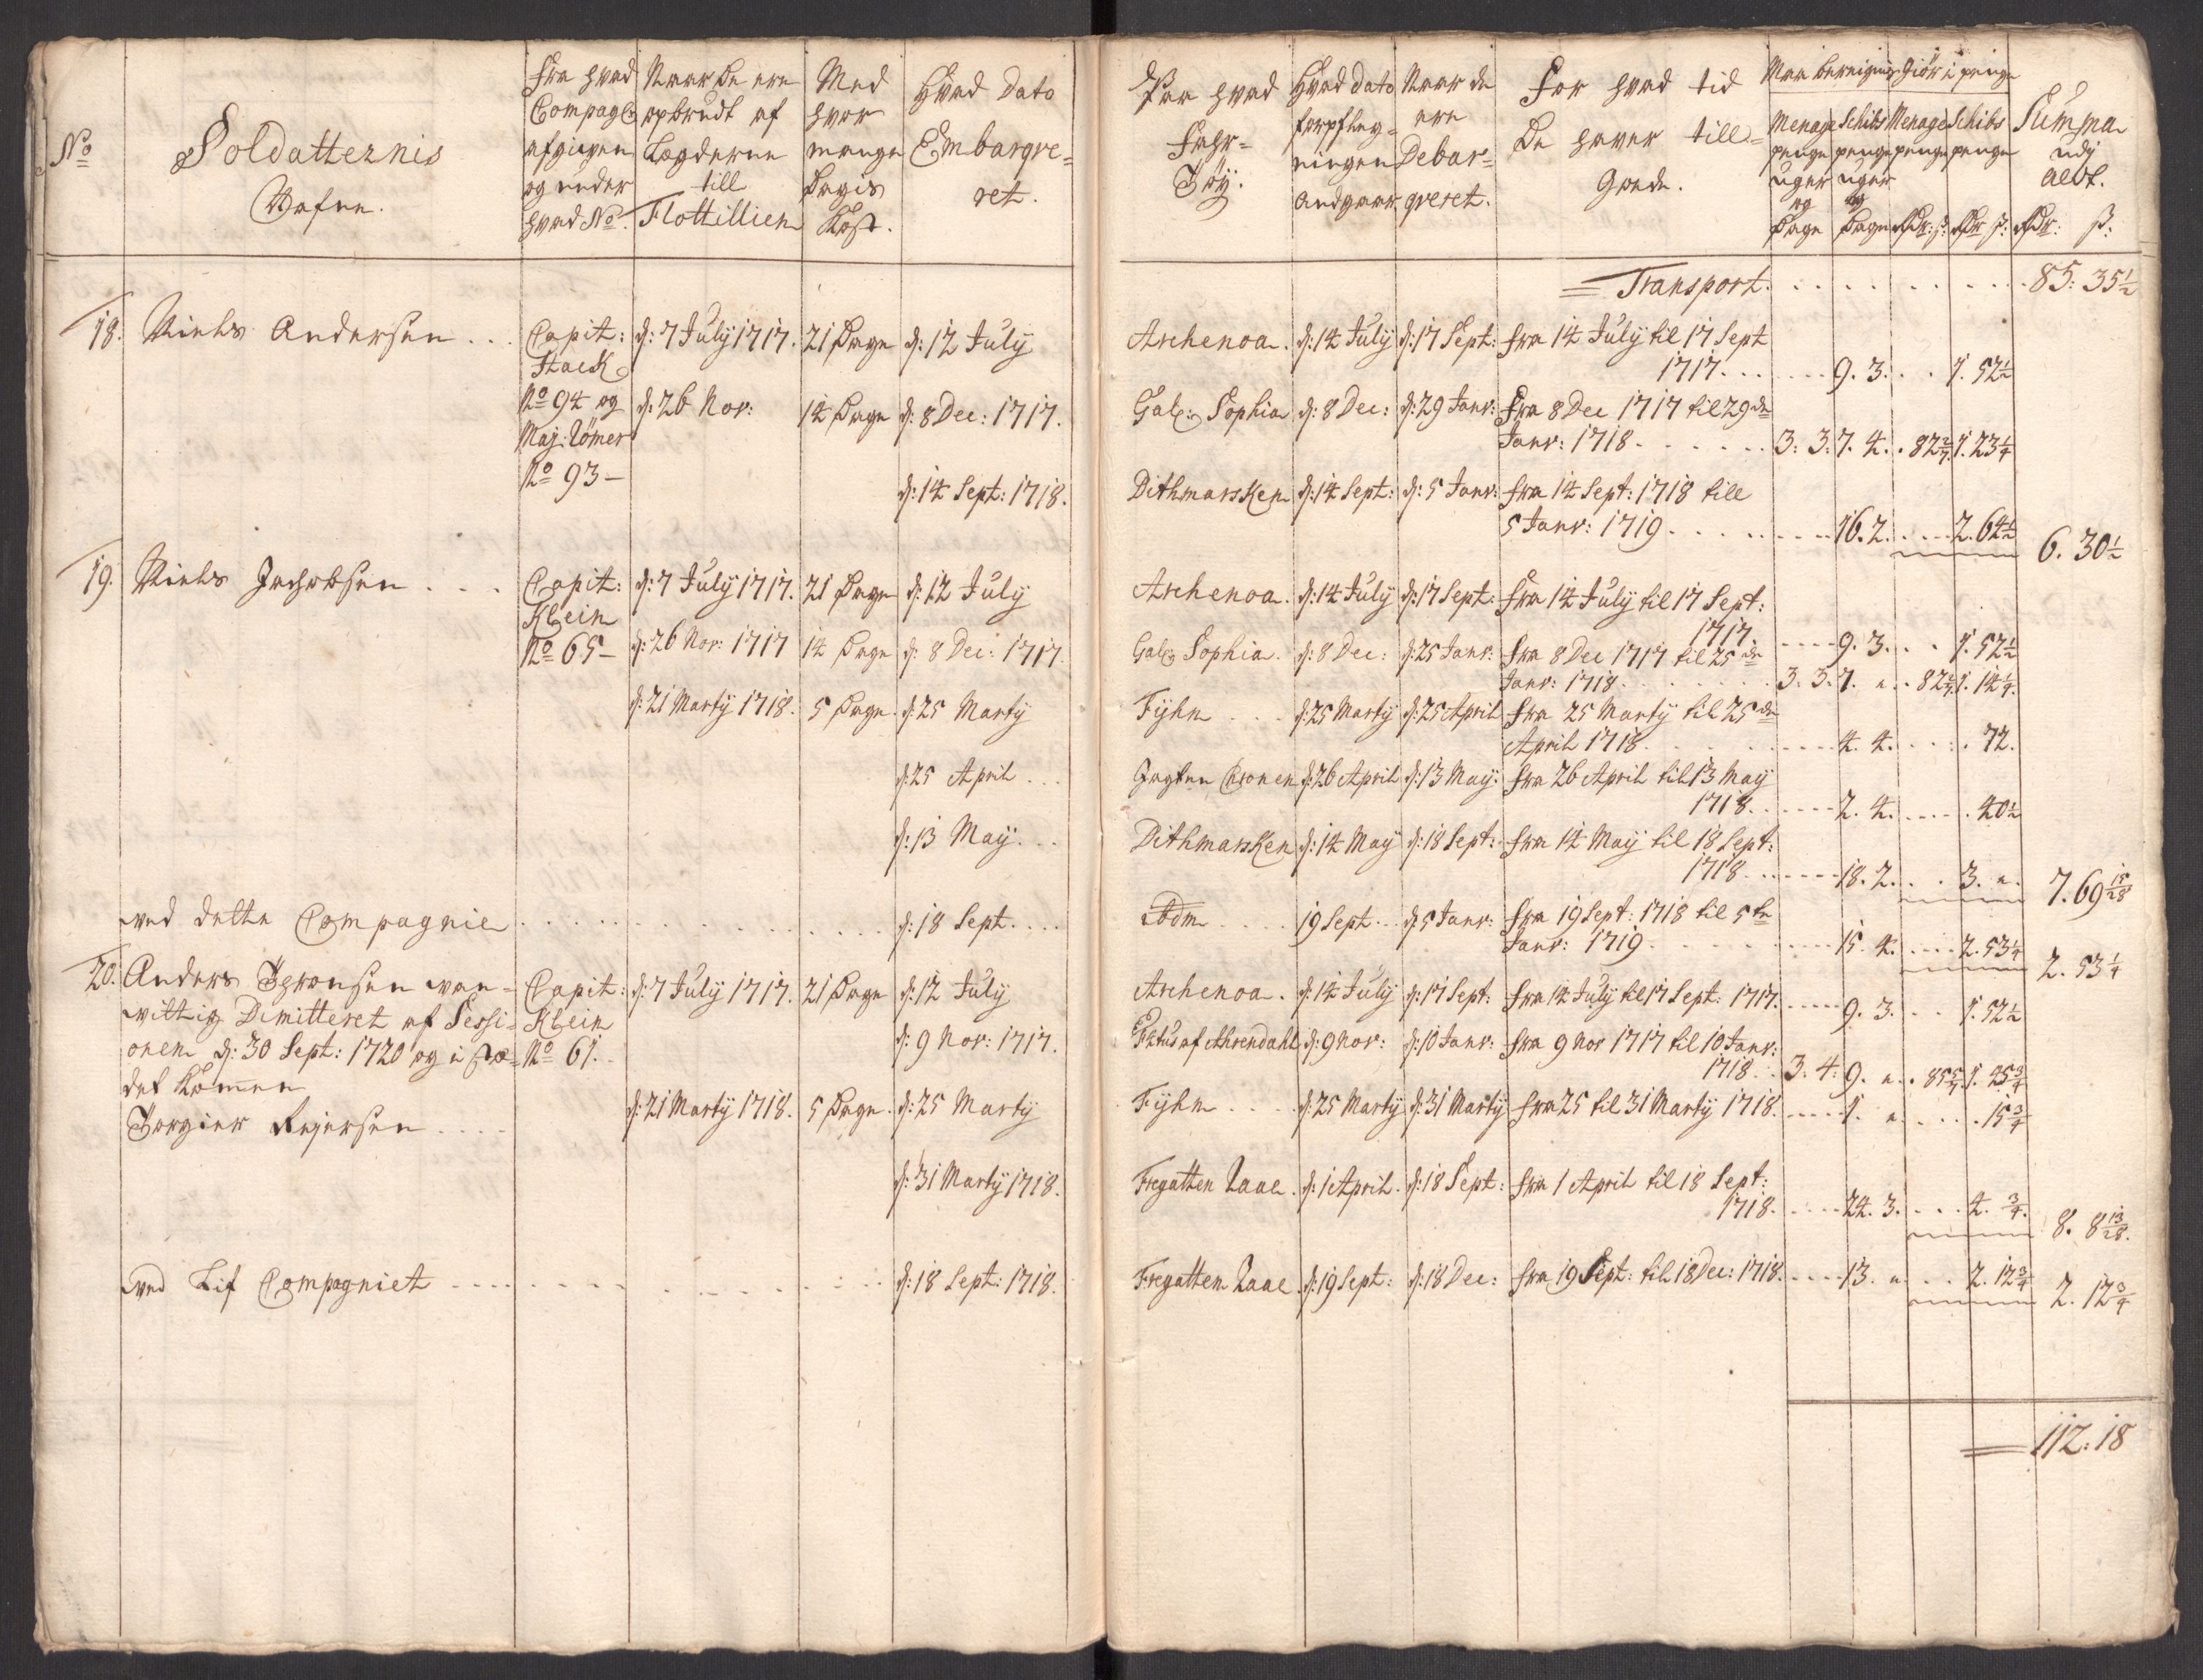 No
Soldatternis
Nafne.
Fra hvad
Compagie
afgiigen
og under
hvad No.
Naar de ere
opbrudt af
Lægderne
till
Flottillien
Med
hvor
mange
Dagis
Kost.
Hvad Dato
Embarqve=
ret.
18. Niels Andersen . . .
Capit:
Stack
No 94 og
Maj: Römer
No 93 –
d: 7 July 1717.
21 Dage
d: 12 July
d: 26 Nov:
14 Dage
d: 8 Dec: 1717.
d: 14 Sept: 1718.
19. Niels Jachobsen . . .
Capit:
Klein
No 65 –
d: 7 July 1717.
21 Dage
d: 12 July
d: 26 Nov: 1717
14 Dage
d: 8 Dec: 1717
d: 21 Marty 1718.
5 Dage.
d: 25 Marty
d: 25 April . . .
d: 13 May. . .
ved dette Compagnie . . . . d: 18 Sept. . . .
20. Anders Thronsen van=
vittig Dimitteret af Sessi=
onen d: 30 Sept: 1720 og i stæ=
det kommen
Torgier Rejersen . . . .
Capit:
Klein
No 61.
d: 7 July 1717.
21 Dage
d: 12 July
d: 9 Nov: 1717.
d: 21 Marty 1718.
5 Dage.
d: 25 Marty
d: 31 Marty 1718.
ved Lif Compagniet . . . . d: 18 Sept: 1718.
Paa hvad
Fahr=
Töy.
Hvad Dato
forpfleg=
ningen
andgaar
Naar de
ere
Debar=
qveret.
For hvad tid
De haver till=
Gode.
Maa bereignis
Giör i penge
Menage
penge
uger
og
Dage
Schibs
penge
uger
og
Dage
Menage
penge
Rdr: s:
Schibs
penge
Rdr s:
Summa
udj
alt.
Rdr: s:
Transport. . . . . 85: 35½
Archenoa. d: 14 July d: 17 Sept: fra 14 July til 17 Sept
1717. . . . 9. 3. . . 1. 52½
Gal: Sophia d: 8 Dec: d: 29 Janv: fra 8 Dec 1717 til 29de
Janv: 1718 . . . . 3: 3. 7. 4. . 82 2/7. 1. 23¼
Dithmarsken d: 14 Sept: d: 5 Janv: fra 14 Sept: 1718 till
5 Janv: 1719 . . . . 16. 2. . . . 2. 64½
6. 30½
Archenoa. d: 14 July d: 17 Sept: fra 14 July til 17 Sept:
1717. . . . 9. 3. . . 1. 52½
Gal: Sophia. d: 8 Dec: d: 25 Janv: fra 8 Dec 1717 til 25de
Janv: 1718 . . . . 3. 3. 7. „ . 82 2/7. 1. 14¼.
Fyhn . . . d: 25 Marty d: 25 April fra 25 Marty til 25de
April 1718. . . . 4. 4. . . . . 72.
Jagten Cronen d: 26 April d: 13 May: fra 26 April til 13 May
1718. . . . 2. 4. . . . . 40½
Dithmarsken d: 14 May d: 18 Sept: fra 14 May til 18 Sept:
1718 . . . . 18. 2. . . 3. „.
7. 69 15/28
Idem . . . 19 Sept. . d: 5 Janv: fra 19 Sept: 1718 til 5te
Janv: 1719. . . . 15. 4. . . . 2. 53¼
2. 53¼
Archenoa. d: 14 July d: 17 Sept: fra 14 July til 17 Sept: 1717. . . . 9. 3. . . 1. 52½
af Ahrendahl d: 9 Nov: d: 10 Janv: fra 9 Nov 1717 til 10 Janv:
1718. . . 3. 4. 9. „ . 85 5/7. 1. 25¾
Fyhn . . . d: 25 Marty d: 31 Marty fra 25 til 31 Marty 1718. . . . 1. „ . . . . 15¾
Fregatten Raae. d: 1 April. d: 18 Sept: fra 1 April til 18 Sept:
1718. . . . 24. 3. . . . 4. ¾.
8. 8 13/28.
Fregatten Raae. d: 19 Sept: d: 18 Dec: fra 19 Sept: til 18 Dec: 1718. . . . 13. „ . . 2. 12¾
2. 12¾
112: 18